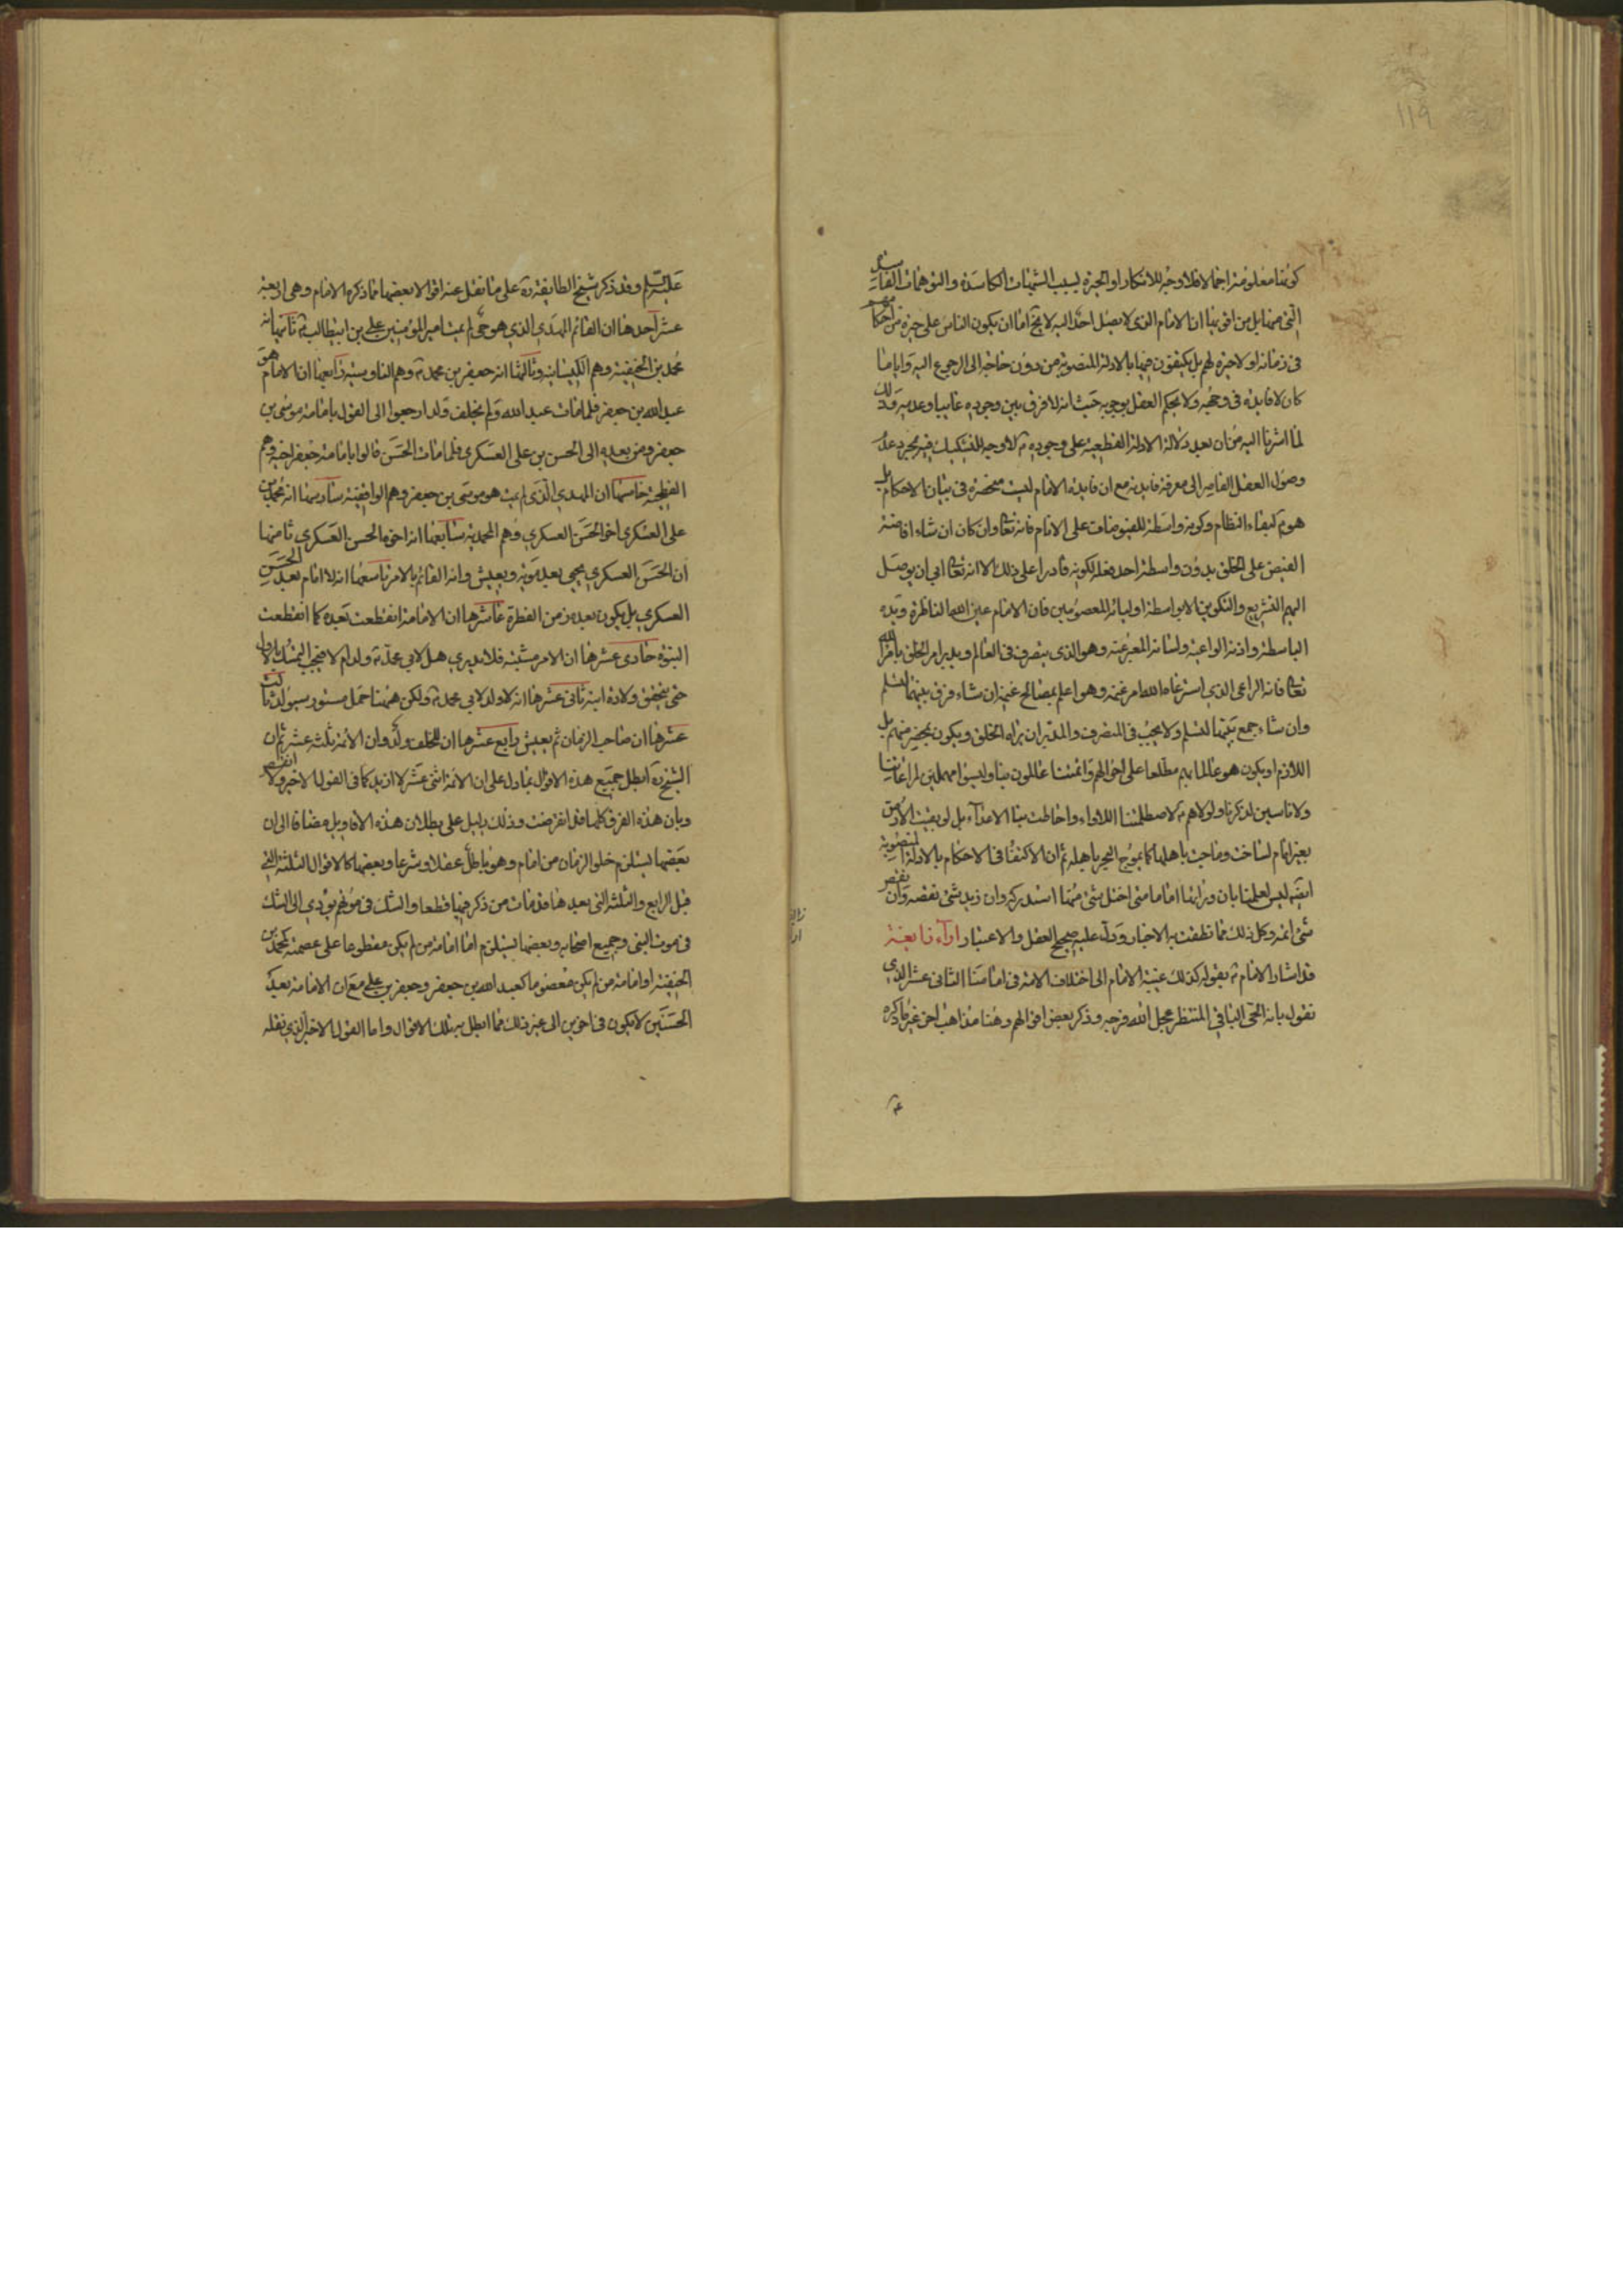 ١١٩
كونها معلومة اجمالا فلا وجه للانكار او الحيرة بسبب الشبهات الكاسدة والتوهمات الفاسدة
التي منها بل من اقويها ان الامام الذي لا يصل احد اليه لا يخ اما ان يكون الناس على حيرة من احكامهم
في زمانه او لا حيرة لهم بل يكتفون فيها بالادلة المنصوبة من دون حاجة الى الرجوع اليه وايا ما
كان لا فايدة في وجوده ولا يحكم العقل بوجوبه حيث انه لا فرق بين وجوده غايبا وعدمه وذلك
لما اشرنا اليه من ان بعد دلالة الادلة القطعية على وجوده ع لا وجه للتشكيك فيه بمجرد عدم
وصول العقل القاصر الى معرفة فايدته مع ان فايدة الامام ليست منحصرة في بيان الاحكام بل
هو لبقاء النظام وكونه واسطة للفيوضات على الانام فانه تعالى وان كان ان شاء افاضة
الفيض على الخلق بدون واسطة احد فعله لكونه قادرا على ذلك الا انه تعالى ابى ان يوصل
اليهم التشريع والتكوين الا بواسطة اوليائه المعصومين فان الامام عين الله الناظرة ويده
الباسطة واذنه الواعية ولسانه المعبر عنه وهو الذي يتصرف في العالم ويدبر امر الخلق بامر الله
تعالى فانه الراعي الذي استرعاه الله امر غنمه وهو اعلم بمصالح غنمه ان شاء فرق بينها لتسلم
وان شاء جمع بينها لتسلم ولا يجب في المتصرف والمدبر ان يراه الخلق ويكون بمحضر منهم بل
اللازم ان يكون هو عالما بهم مطلعا على احوالهم وائمتنا عالمون بنا وليسوا مهملين لمراعاتنا
ولا ناسين لذكرنا ولولاهم ع لاصطلمتنا اللاواء واحاطت بنا الاعداء بل لو بقيت الارض
بغير امام لساخت وماجت باهلها كما يموج البحر باهله ثم ان الاكتفاء في الاحكام بالادلة المنصوبة
ايضا ليس لعلمنا بان ورائنا اماما متى اختل شئ منها استدركه وان زيد شئ نقصه وان نقص
شئ اتمه وكل ذلك مما نطقت به الاخبار ودل عليه صحيح العقل والاعتبار اراء
قد اشار الامام ع بقوله كذلك غيبة الامام الى اختلاف الامة في امامنا الثاني عشر الذي
نقول بانه الحي الباقي المنتظر عجل الله فرجه وذكر بعض اقوالهم وهنا مذاهب اخر غير ما ذكره
عليه السلم وقد ذكر شيخ الطايفة ره على ما نقل عنه اقوالا بعضها ما ذكره الامام وهي اربعة
عشر احدها ان القائم المهدي الذي هو حي لم يمت امير المؤمنين علي بن ابيطالب ع ثانيها انه
محمد بن الحنفية وهم الكيسانية وثالثها انه جعفر بن محمد ع وهم الناووسية رابعها ان الامام هو
عبد الله بن جعفر فلما مات عبد الله ولم يخلف ولدا رجعوا الى القول بامامة موسى بن
جعفر ومن بعده الى الحسن بن علي العسكري فلما مات الحسن قالوا بامامة جعفر اخيه وهم
الفطحية خامسها ان المهدي الذي لم يمت هو موسى بن جعفر وهم الواقفية سادسها انه محمد بن
علي العسكري اخو الحسن العسكري وهم المحمدية سابعها انه اخوه الحسن العسكري ثامنها
ان الحسن العسكري يحيى بعد موته ويعيش وانه القائم بالامر تاسعها انه لا امام بعد الحسن
العسكري بل يكون بعده زمن الفطرة عاشرها ان الامامة انقطعت بعده كما انقطعت
النبوة حادى عشرها ان الامر مشتبه فلا يدري هل لابي محمد ع ولد ام لا فيجب التمسك بالاول
حتى يتحقق ولادة ابنه ثاني عشرها انه لا ولد لابي محمد ع ولكن ههنا حمل مستور سيولد ثالث
عشرها ان صاحب الزمان ثم يعيش رابع عشرها ان للخلف ولد وان الائمة ثلثة عشر ثم ان
الشيخ ره ابطل جميع هذه الاقوال بما دل على ان الائمة اثنى عشر لا ازيد كما في القول الاخير ولا انقص
وبان هذه الفرق كلها قد انقرضت وذلك دليل على بطلان هذه الاقاويل مضافا الى ان
بعضها يستلزم خلو الزمان من امام وهو باطل عقلا وشرعا وبعضها كالاقوال الثلثة التي
قبل الرابع والثلثة التي بعدها قد مات من ذكر فيها قطعا والشك في موتهم يؤدي الى الشك
في موت النبي وجميع اصحابه وبعضها يستلزم اما امامة من لم يكن مقطوعا على عصمته كمحمد بن
الحنفية او امامة من لم يكن معصوما كعبد الله بن جعفر وجعفر بن علي مع ان الامامة بعد
الحسنين لا يكون في اخوين الى غير ذلك مما ابطل به تلك الاقوال واما القول الاخير الذي نقله